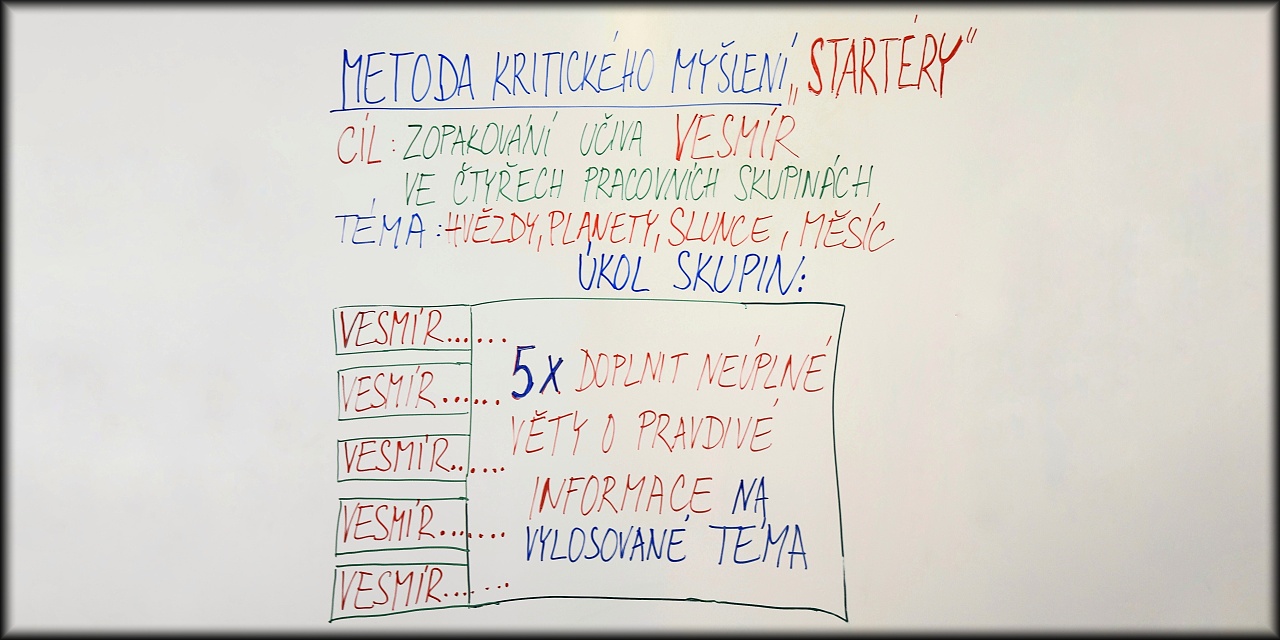 METODA KRITICKÉHO MYŠLENÍ „STARTÉRY“
CÍL: ZOPAKOVÁNÍ UČIVA VESMÍR
VE ČTYŘECH PRACOVNÍCH SKUPINÁCH
TÉMA: HVĚZDY, PLANETY, SLUNCE, MĚSÍC
ÚKOL SKUPIN:
VESMÍR......
VESMÍR......
VESMÍR......
VESMÍR.......
VESMÍR......
5X DOPLNIT NEÚPLNÉ
VĚTY O PRAVDIVÉ
INFORMACE NA
VYLOSOVANÉ TÉMA